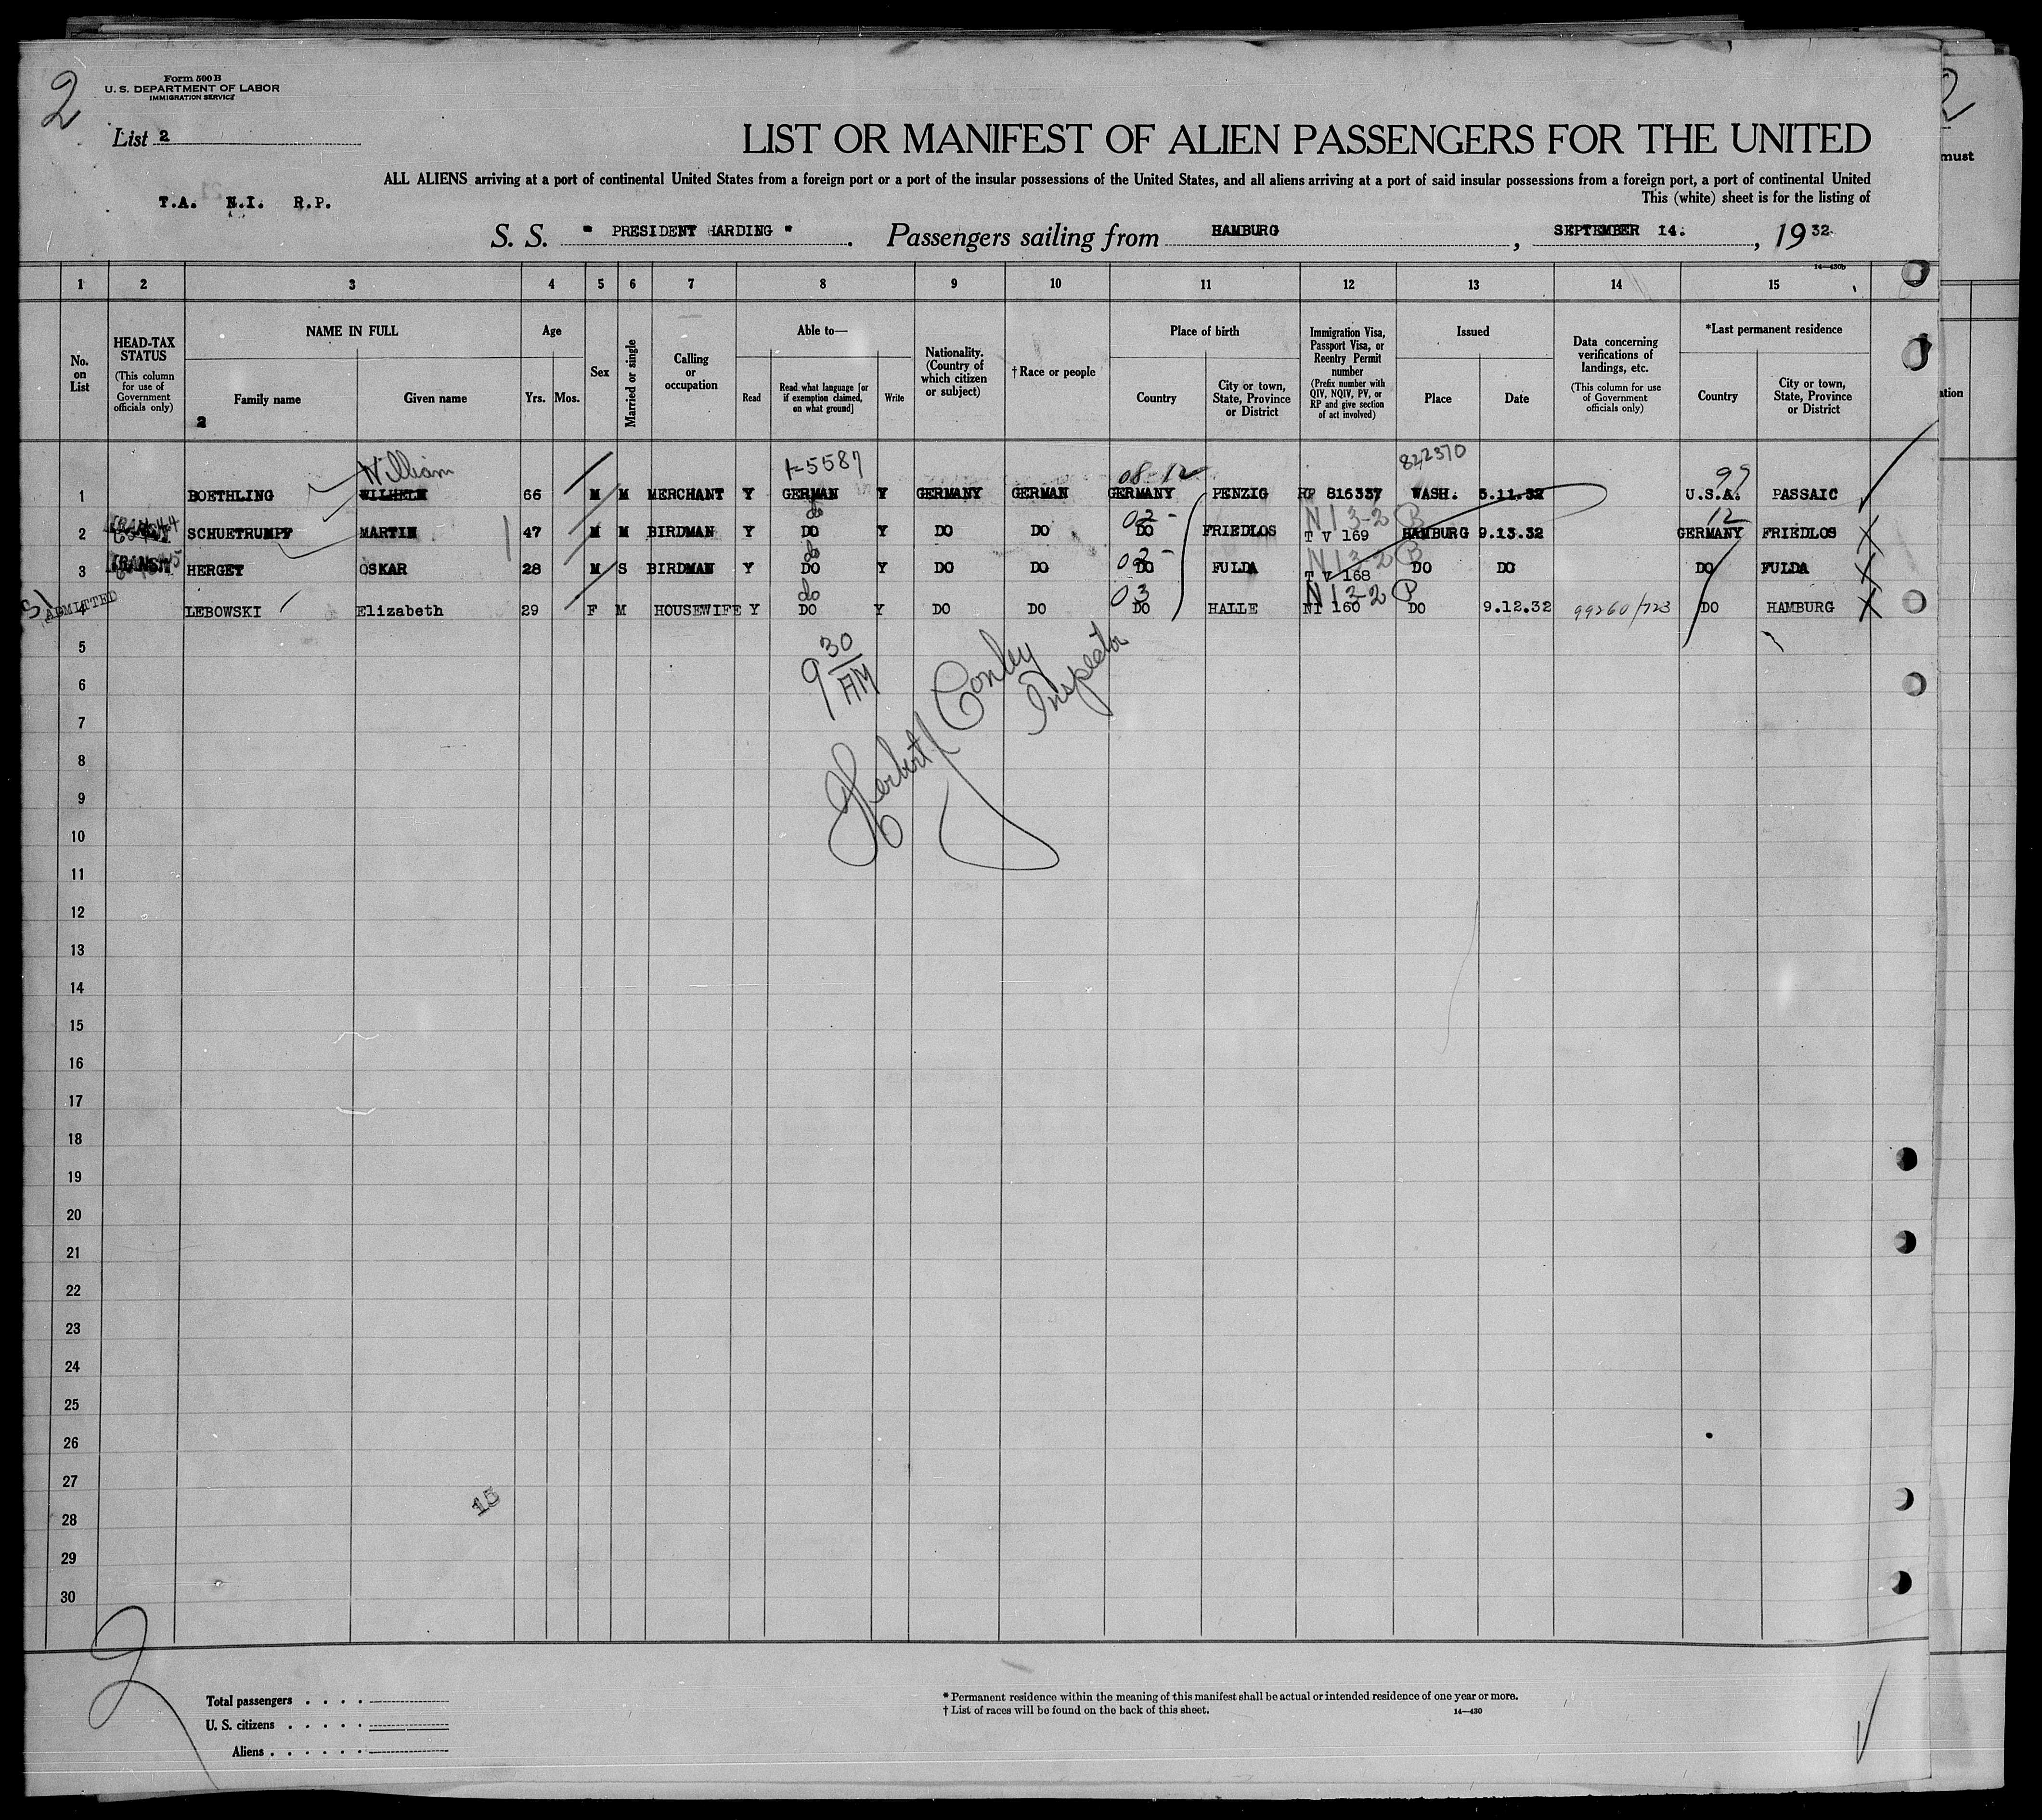 2
Form 500 B
U. S. DEPARTMENT OF LABOR
IMMIGRATION SERVICE
List 2
LIST OR MANIFEST OF ALIEN PASSENGERS FOR THE UNITED
must
ALL ALIENS arriving at a port of continental United States from a foreign port or a port of the insular possessions of the United States, and all aliens arriving at a port of said insular possessions from a foreign port, a port of continental United
T.A. N.I. R.P.
This (white) sheet is for the listing of
S. S. " PRESIDENT HARDING " . Passengers sailing from HAMBURG , SEPTEMBER 14. , 19 32
14—430b
1 2 3 4 5 6 7 8 9 10 11 12 13 14 15
No. on List
HEAD-TAX STATUS (This column for use of Government officials only)
NAME IN FULL
Family name
2
Given name
Age
Yrs. Mos.
Sex
Married or single
Calling or occupation
Able to—
Read
Read what language [or if exemption claimed, on what ground]
Write
Nationality. (Country of which citizen or subject)
†Race or people
Place of birth
Country
City or town, State, Province or District
Immigration Visa, Passport Visa, or Reentry Permit number (Prefix number with QIV, NQIV, PV, or RP and give section of act involved)
Issued
Place
Date
Data concerning verifications of landings, etc. (This column for use of Government officials only)
*Last permanent residence
Country
City or town, State, Province or District
ation
William 1-5587 08-12 822370 99
1 BOETHLING WILHELM 66 M M MERCHANT Y GERMAN Y GERMANY GERMAN GERMANY PENZIG RP 816337 WASH. 5.11.32 U.S.A. PASSAIC
TRANSIT do 02- N13-2 B 12
2 SCHUETRUMPF MARTIN 47 M M BIRDMAN Y DO Y DO DO DO FRIEDLOS T V 169 HAMBURG 9.13.32 GERMANY FRIEDLOS
TRANSIT do 02- N13-2 B
3 HERGET OSKAR 28 M S BIRDMAN Y DO Y DO DO DO FULDA T V 168 DO DO DO FULDA
ADMITTED do 03 N13-2 P
4 LEBOWSKI Elizabeth 29 F M HOUSEWIFE Y DO Y DO DO DO HALLE NI 160 DO 9.12.32 99260/723 DO HAMBURG
5
9 30 AM
Herbert Conley
Inspector
6
7
8
9
10
11
12
13
14
15
16
17
18
19
20
21
22
23
24
25
26
27
15
28
29
30
2
Total passengers . . . .
U. S. citizens . . . . .
Aliens . . . . . .
* Permanent residence within the meaning of this manifest shall be actual or intended residence of one year or more.
† List of races will be found on the back of this sheet.
14—430